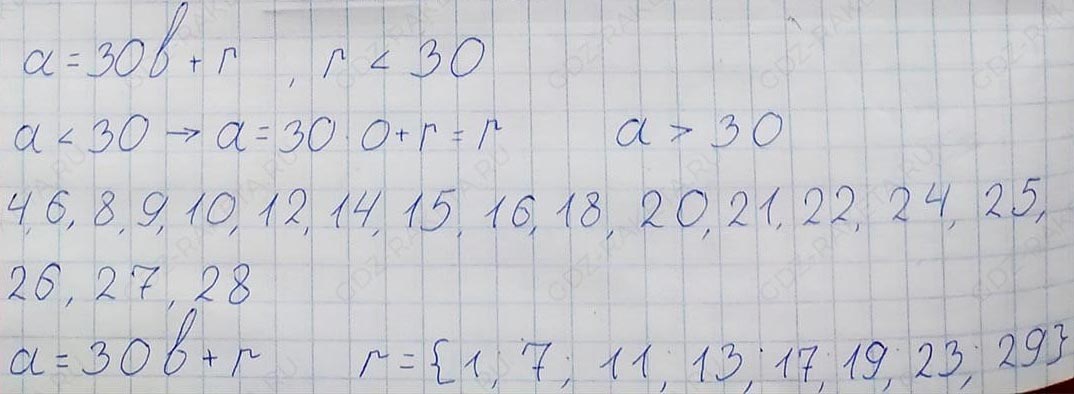 a = 30b + r , r < 30
a < 30 → a = 30 · 0 + r = r a > 30
4, 6, 8, 9, 10, 12, 14, 15, 16, 18, 20, 21, 22, 24, 25,
26, 27, 28
a = 30b + r r = {1; 7; 11; 13; 17; 19; 23; 29}